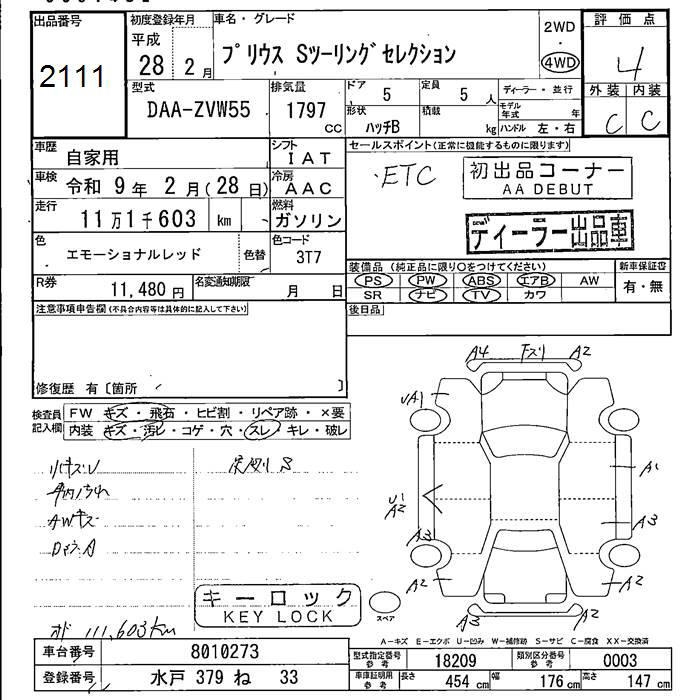 出品番号
2111
初度登録年月
平成
28 2月
車名・グレード
プリウス Sツーリングセレクション
2WD
・
4WD
評価点
4
外装 内装
C C
型式
DAA-ZVW55
排気量
1797
cc
ドア
5
定員
5 人
形状
ハッチB
積載
kg
ディーラー・並行
モデル年式 年
ハンドル 左・右
車歴
自家用
シフト
IAT
車検
令和 9年 2月(28日)
冷房
AAC
走行
11万1千603 km
燃料
ガソリン
色
エモーショナルレッド
色替
色コード
3T7
R券
11,480円
名変通知期限
月 日
セールスポイント(正常に機能するものに限ります)
ETC
初出品コーナー
AA DEBUT
ディーラー出品車
装備品(純正品に限り○をつけてください)
PS PW ABS エアB AW
SR ナビ TV カワ
新車保証書
有・無
後日品
注意事項申告欄(不具合内容等は具体的に記入して下さい)
修復歴 有〔箇所 〕
検査員記入欄
FW キズ・飛石・ヒビ割・リペア跡・×要
内装 キズ・汚レ・コゲ・穴・スレ・キレ・破レ
AWキズ
キーロック
KEY LOCK
スペア
111,603km
A4 下スリ A2
A1
A1
U1
A2
A3
A3
A2
A2
A3
A2
A-キズ E-エクボ U-凹み W-補修跡 S-サビ C-腐食 XX-交換済
車台番号
8010273
登録番号
水戸 379 ね 33
型式指定番号
参考
18209
類別区分番号
参考
0003
車庫証明用
参考
長さ
454 cm
幅
176 cm
高さ
147 cm